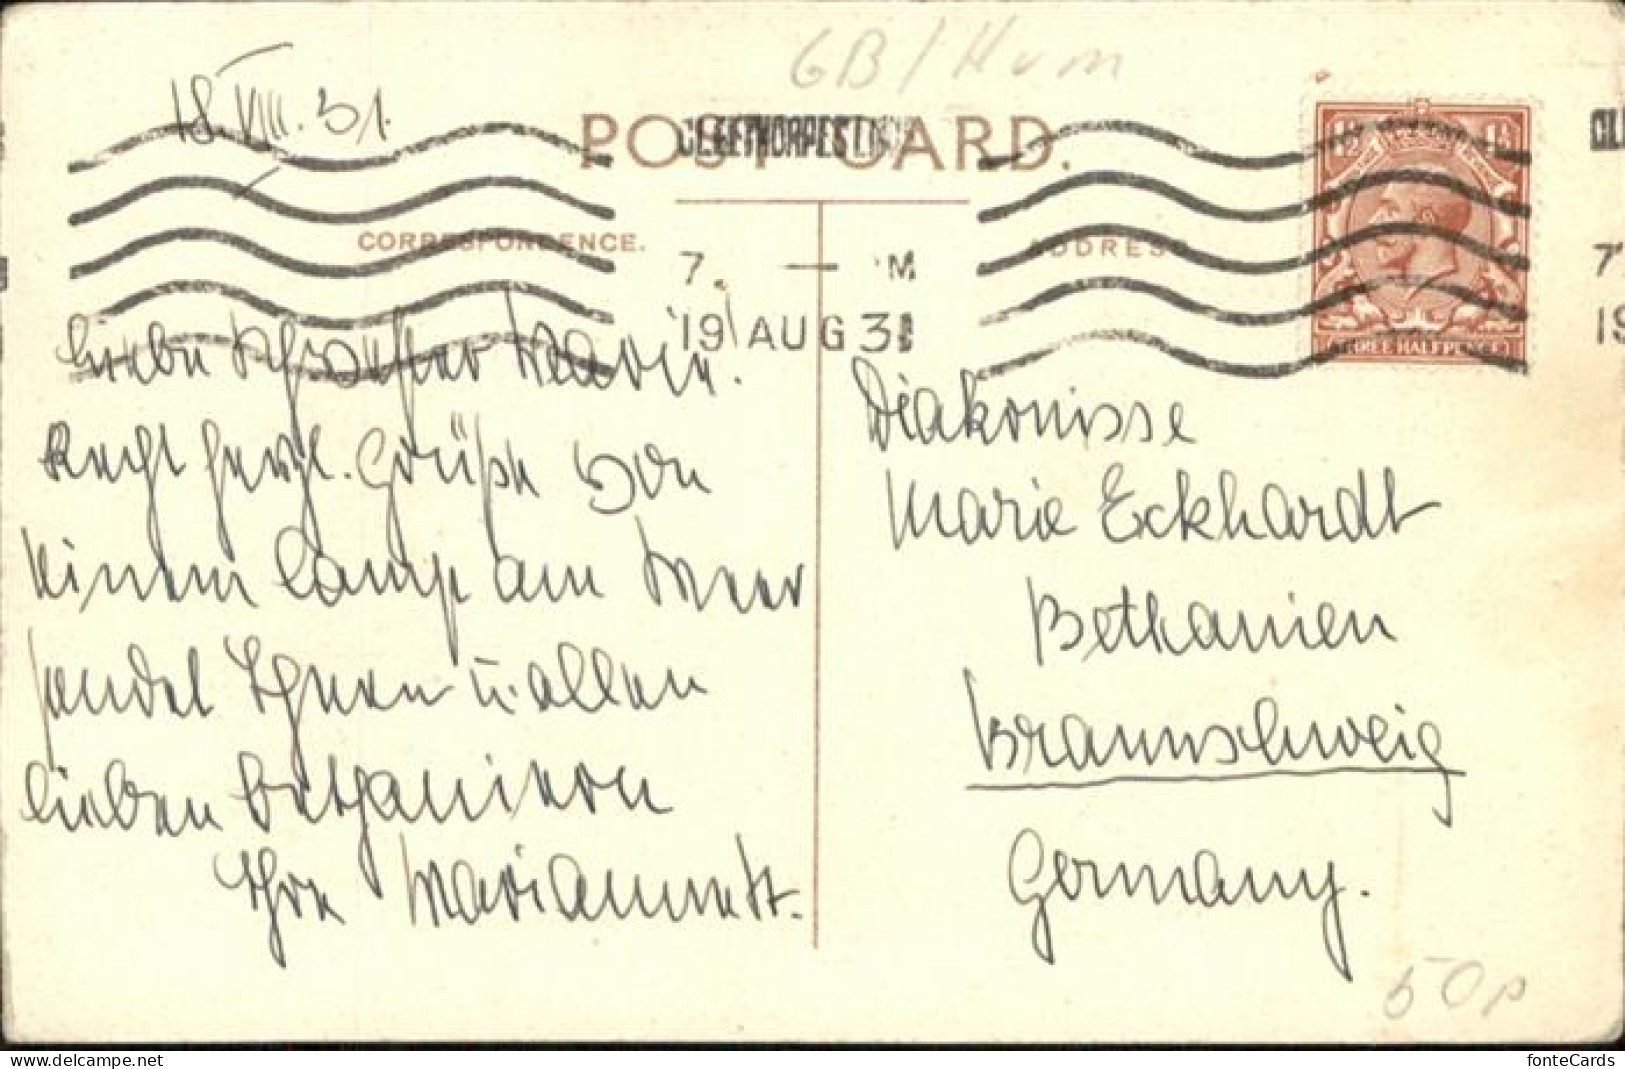 GB / Hum
18. VIII. 31.
POST CARD.
CLEETHORPES LINCS
CORRESPONDENCE.
ADDRESS
7. — M
19 AUG 31
THREE HALF PENCE
Liebe Schwester Marie.
Recht herzl. Grüße von
einem Camp am Meer
sendet Ihnen u. allen
lieben Bethanieren
Ihre
Diakonisse
Marie Eckhardt
Bethanien
Braunschweig
Germany.
50p
fonteCards